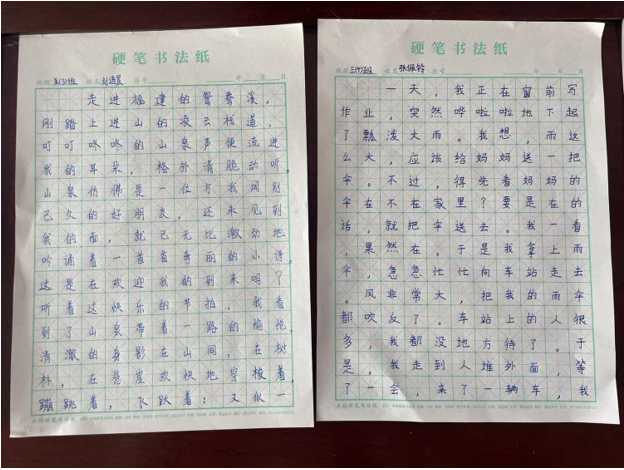 硬笔书法纸
班级 姓名 学号 年 月 日
走进福建的鸳鸯溪，
刚踏上进山的凌云栈道，
叮叮咚咚的山泉声便流进
我的耳朵，格外清脆动听
山泉仿佛是一位与我阔别
已久的好朋友，还未见到
我的面，就已无比激动地
吟诵着一首首秀丽的小诗
这是在欢迎我的到来吗？
听着这快乐的节拍，我看
到了山泉带着一路的愉悦
清澈的身影在山间，在树
林，在悬崖欢快地穿梭着
蹦跳着，飞跃着；又似一
硬笔书法纸
班级 姓名 张佩铃 学号 年 月 日
一天，我正在窗前写
作业，突然哗啦啦地下起
了瓢泼大雨。我想，雨这
么大，应该给妈妈送一把
伞。不过，得先看妈妈的
伞在不在家里？要是在的
话，就把伞送去。我一看
，果然在。于是我拿上雨
伞，急急忙忙向车站走去
。风非常大，把我的雨伞
都吹反了。车站上的人很
多，我都没地方待了。于
是，我走到人堆外面，等
了一会，来了一辆车，我